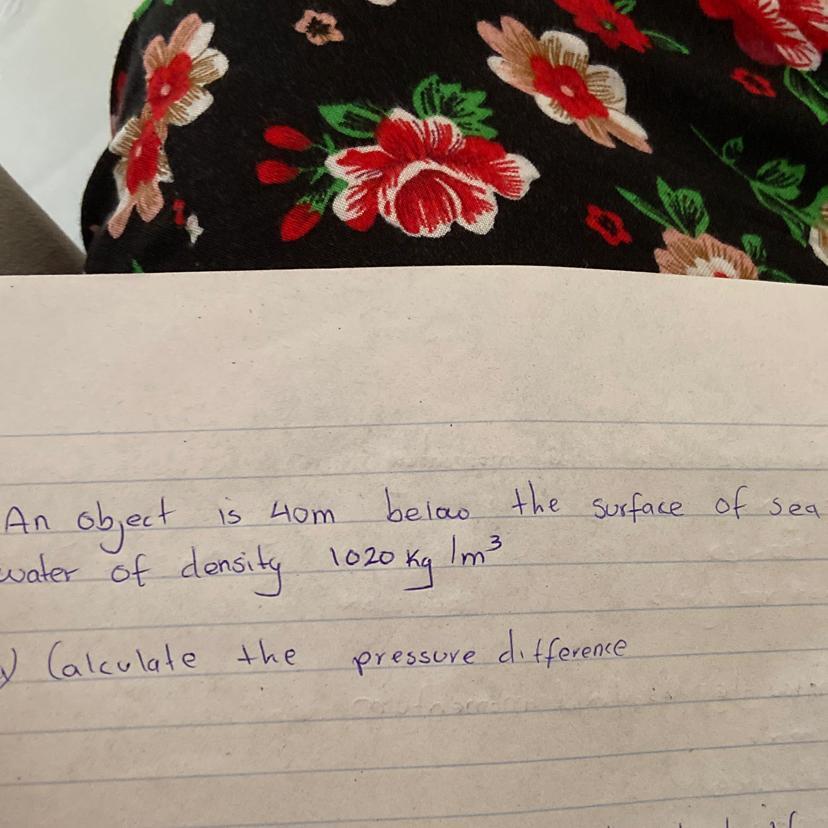 An object is 40m below the surface of sea
water of density 1020 Kg/m³
) Calculate the pressure difference